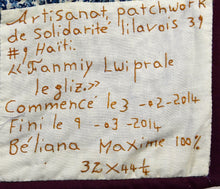 Artisanat, patchwork
de Solidarité lilavois 39
#9 Haïti.
« Fanmiy Lwiprale
legliz.»
Commencé le 3 -02-2014
Fini le 9 -03-2014
Béliana Maxime 100%
32x44